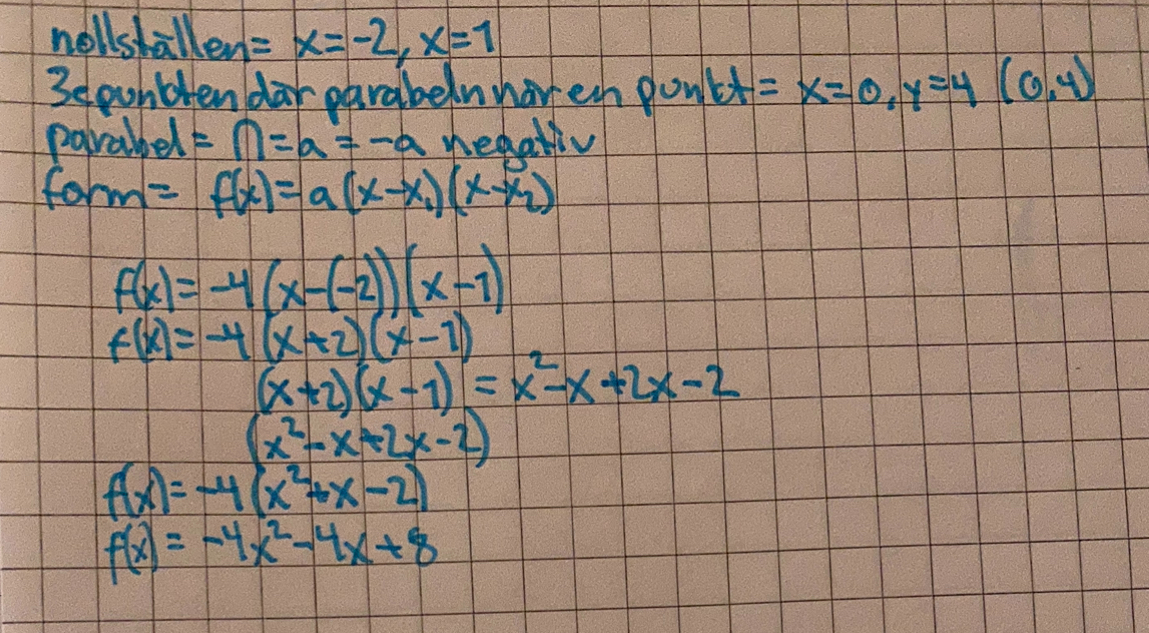 nollställen= x=-2, x=1
3e punkten där parabeln når en punkt= x=0, y=4 (0,4)
parabel= ∩=a=-a negativ
form= f(x)=a(x-x₁)(x-x₂)
f(x)=-4(x-(-2))(x-1)
f(x)=-4(x+2)(x-1)
(x+2)(x-1)=x²-x+2x-2
(x²-x+2x-2)
f(x)=-4(x²+x-2)
f(x)=-4x²-4x+8